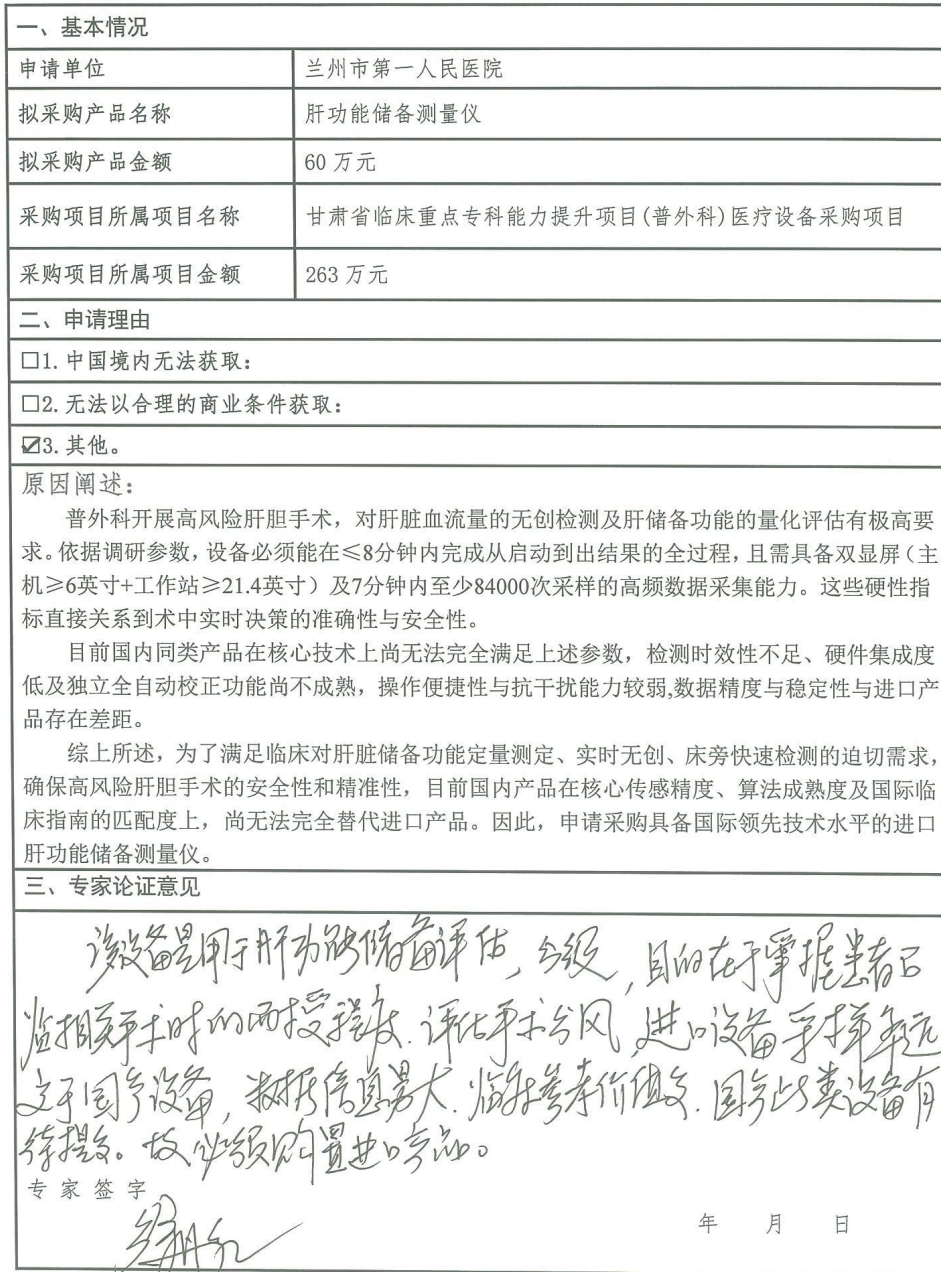 一、基本情况
申请单位 兰州市第一人民医院
拟采购产品名称 肝功能储备测量仪
拟采购产品金额 60 万元
采购项目所属项目名称 甘肃省临床重点专科能力提升项目(普外科)医疗设备采购项目
采购项目所属项目金额 263 万元
二、申请理由
☐1. 中国境内无法获取：
☐2. 无法以合理的商业条件获取：
☑3. 其他。
原因阐述：
普外科开展高风险肝胆手术，对肝脏血流量的无创检测及肝储备功能的量化评估有极高要
求。依据调研参数，设备必须能在≤8分钟内完成从启动到出结果的全过程，且需具备双显屏（主
机≥6英寸+工作站≥21.4英寸）及7分钟内至少84000次采样的高频数据采集能力。这些硬性指
标直接关系到术中实时决策的准确性与安全性。
目前国内同类产品在核心技术上尚无法完全满足上述参数，检测时效性不足、硬件集成度
低及独立全自动校正功能尚不成熟，操作便捷性与抗干扰能力较弱,数据精度与稳定性与进口产
品存在差距。
综上所述，为了满足临床对肝脏储备功能定量测定、实时无创、床旁快速检测的迫切需求，
确保高风险肝胆手术的安全性和精准性，目前国内产品在核心传感精度、算法成熟度及国际临
床指南的匹配度上，尚无法完全替代进口产品。因此，申请采购具备国际领先技术水平的进口
肝功能储备测量仪。
三、专家论证意见
该设备是用于肝功能储备评估，分级，目的在于掌握患者
手术时的耐受程度．评估手术，进口设备采样率远
于国产设备，数据信息量大．临床参考价值高．国产此类设备有
待提高。故必须购置进口产品。
专家签字
年 月 日